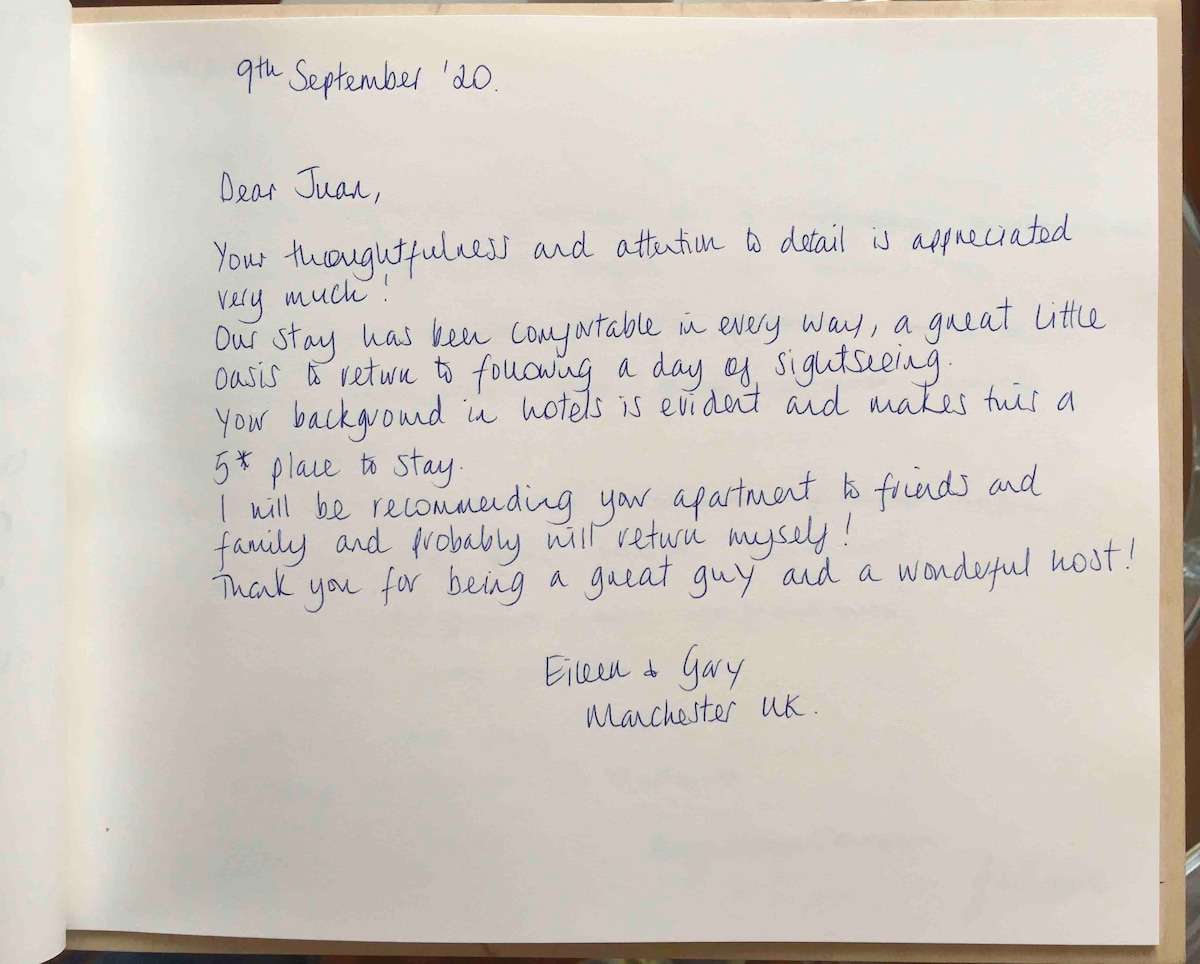 9th September '20.
Dear Juan,
Your thoughtfulness and attention to detail is appreciated
very much!
Our stay has been comfortable in every way, a great little
oasis to return to following a day of sightseeing.
Your background in hotels is evident and makes this a
5* place to stay.
I will be recommending your apartment to friends and
family and probably will return myself!
Thank you for being a great guy and a wonderful host!
Eileen & Gary
Manchester UK.